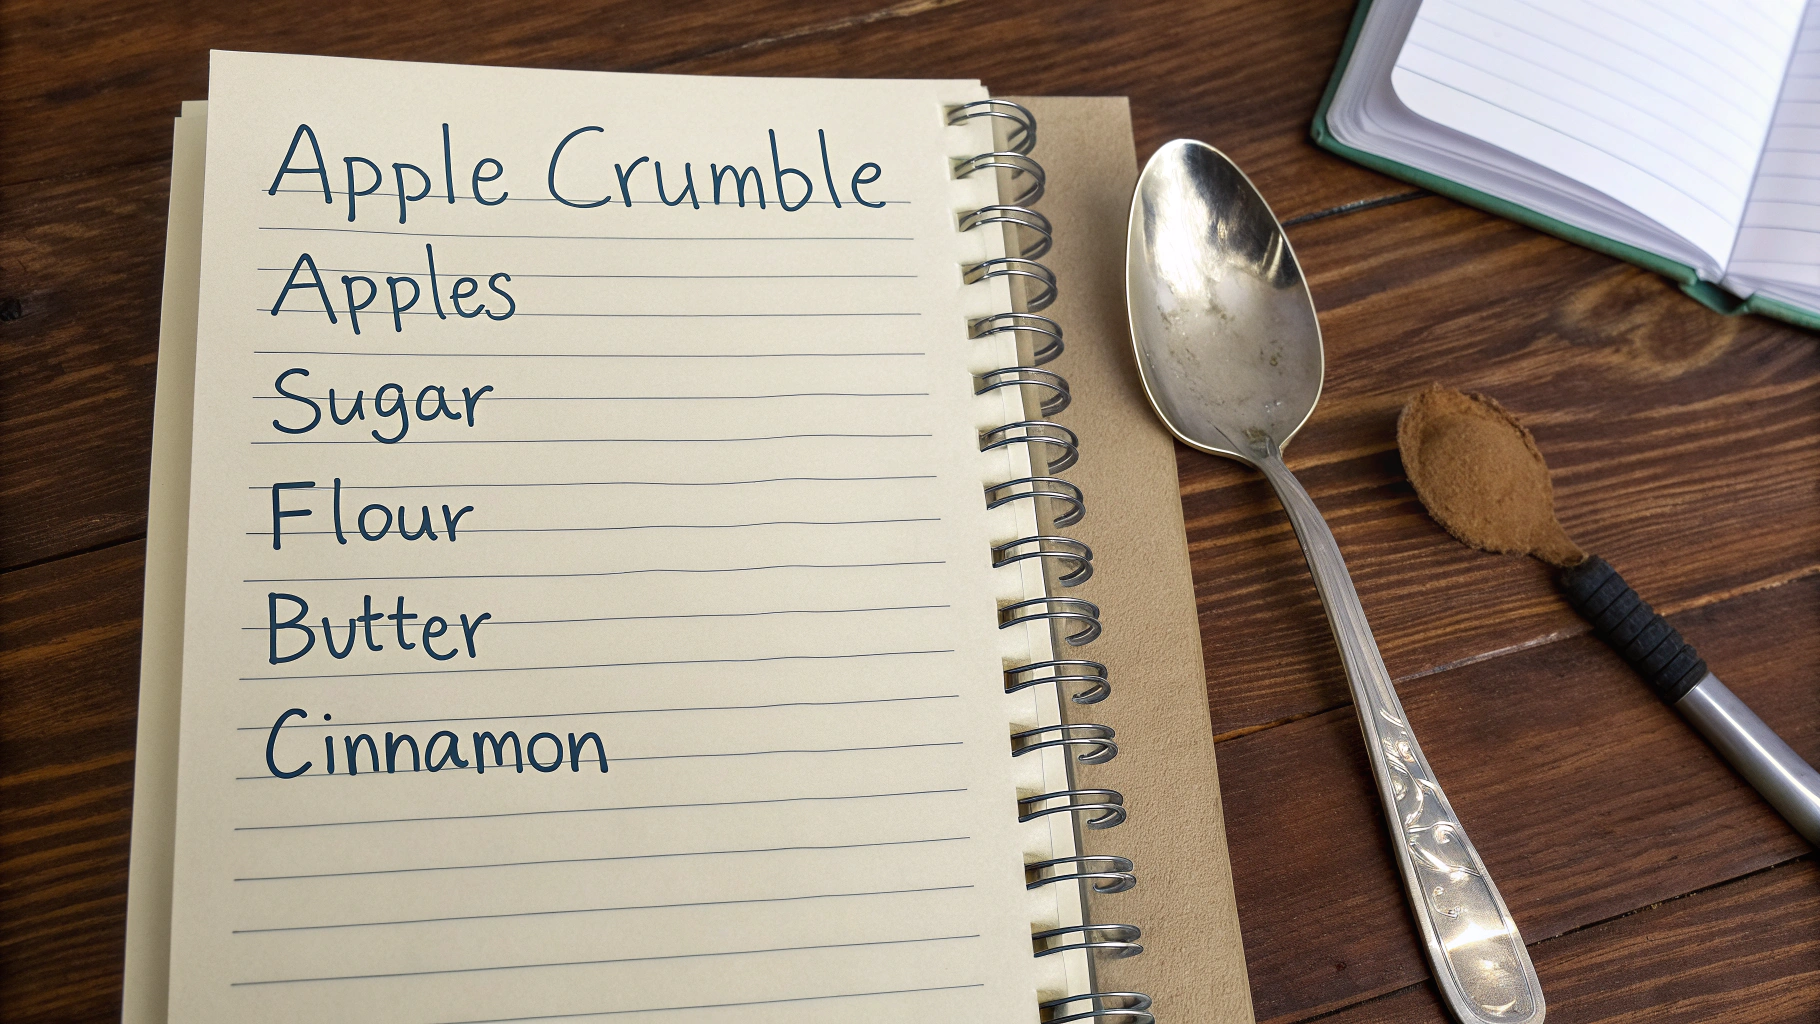 Apple Crumble
Apples
Sugar
Flour
Butter
Cinnamon